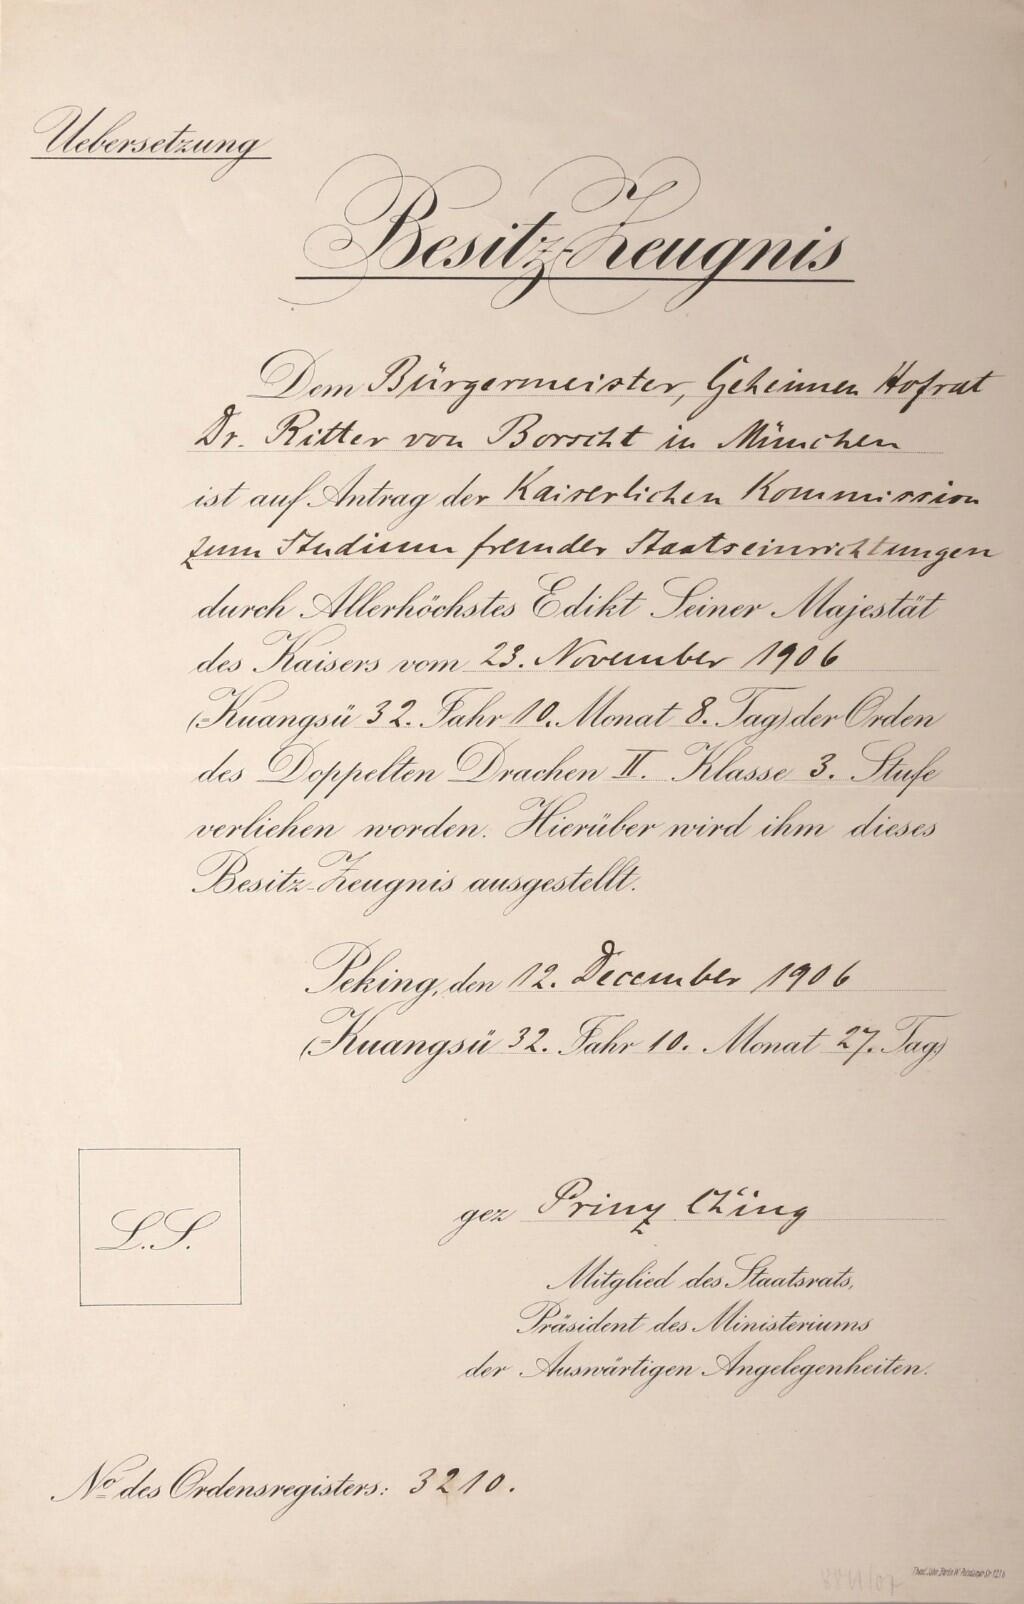 Uebersetzung
Besitz-Zeugnis
Dem Bürgermeister, Geheimen Hofrat
Dr. Ritter von Borscht in München
ist auf Antrag der Kaiserlichen Kommission
zum Studium fremder Staatseinrichtungen
durch Allerhöchstes Edikt Seiner Majestät
des Kaisers vom 23. November 1906
(Kuangsü 32. Jahr 10. Monat 8. Tag) der Orden
des Doppelten Drachen II. Klasse 3. Stufe
verliehen worden. Hierüber wird ihm dieses
Besitz-Zeugnis ausgestellt.
Peking, den 12. December 1906
(Kuangsü 32. Jahr 10. Monat 27. Tag)
L.S.
gez Prinz Ch'ing
Mitglied des Staatsrats,
Präsident des Ministeriums
der Auswärtigen Angelegenheiten.
No des Ordensregisters: 3210.